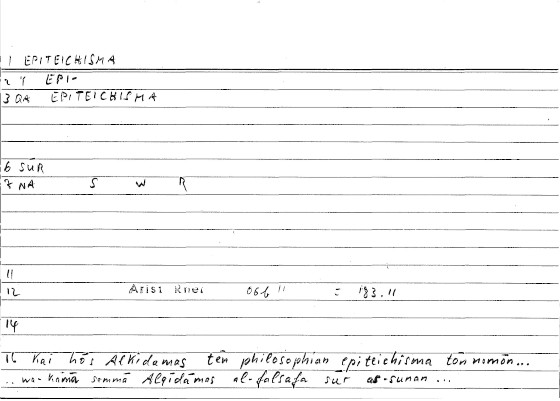 1 EPITEICHISMA
2 Y EPI-
3 QA EPITEICHISMA
6 SŪR
7 NA S W R
11
12 Arist Rhet 06b 11 = 183.11
14
15 Kai hōs Alkidamas tēn philosophian epiteichisma tōn nomōn...
.. wa-kamā sammā Alqidāmas al-falsafa sūr as-sunan ...